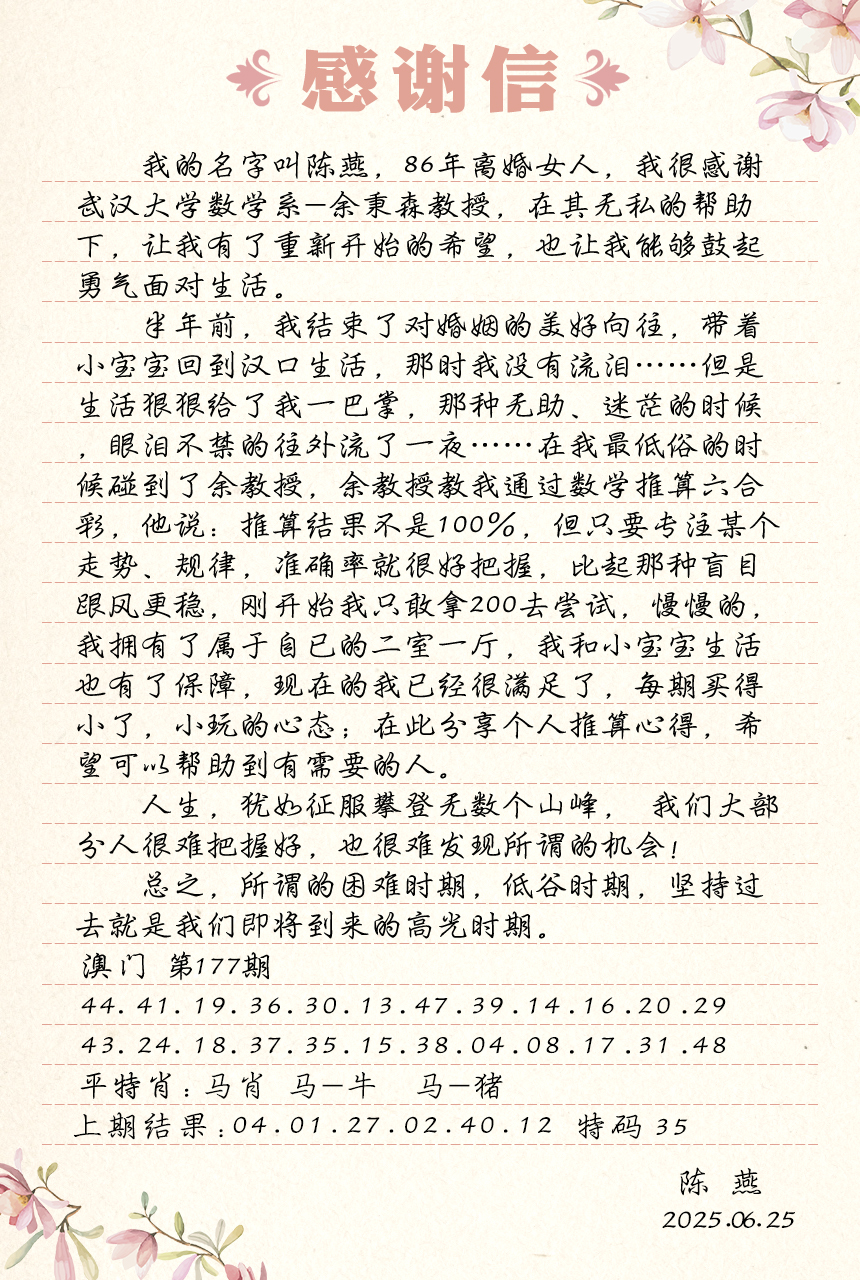 感谢信
我的名字叫陈燕，86年离婚女人，我很感谢
武汉大学数学系—余秉森教授，在其无私的帮助
下，让我有了重新开始的希望，也让我能够鼓起
勇气面对生活。
半年前，我结束了对婚姻的美好向往，带着
小宝宝回到汉口生活，那时我没有流泪……但是
生活狠狠给了我一巴掌，那种无助、迷茫的时候
，眼泪不禁的往外流了一夜……在我最低俗的时
候碰到了余教授，余教授教我通过数学推算六合
彩，他说：推算结果不是100%，但只要专注某个
走势、规律，准确率就很好把握，比起那种盲目
跟风更稳，刚开始我只敢拿200去尝试，慢慢的，
我拥有了属于自已的二室一厅，我和小宝宝生活
也有了保障，现在的我已经很满足了，每期买得
小了，小玩的心态；在此分享个人推算心得，希
望可以帮助到有需要的人。
人生，犹如征服攀登无数个山峰， 我们大部
分人很难把握好，也很难发现所谓的机会！
总之，所谓的困难时期，低谷时期，坚持过
去就是我们即将到来的高光时期。
澳门 第177期
44.41.19.36.30.13.47.39.14.16.20.29
43.24.18.37.35.15.38.04.08.17.31.48
平特肖：马肖 马—牛 马—猪
上期结果：04.01.27.02.40.12 特码 35
陈 燕
2025.06.25